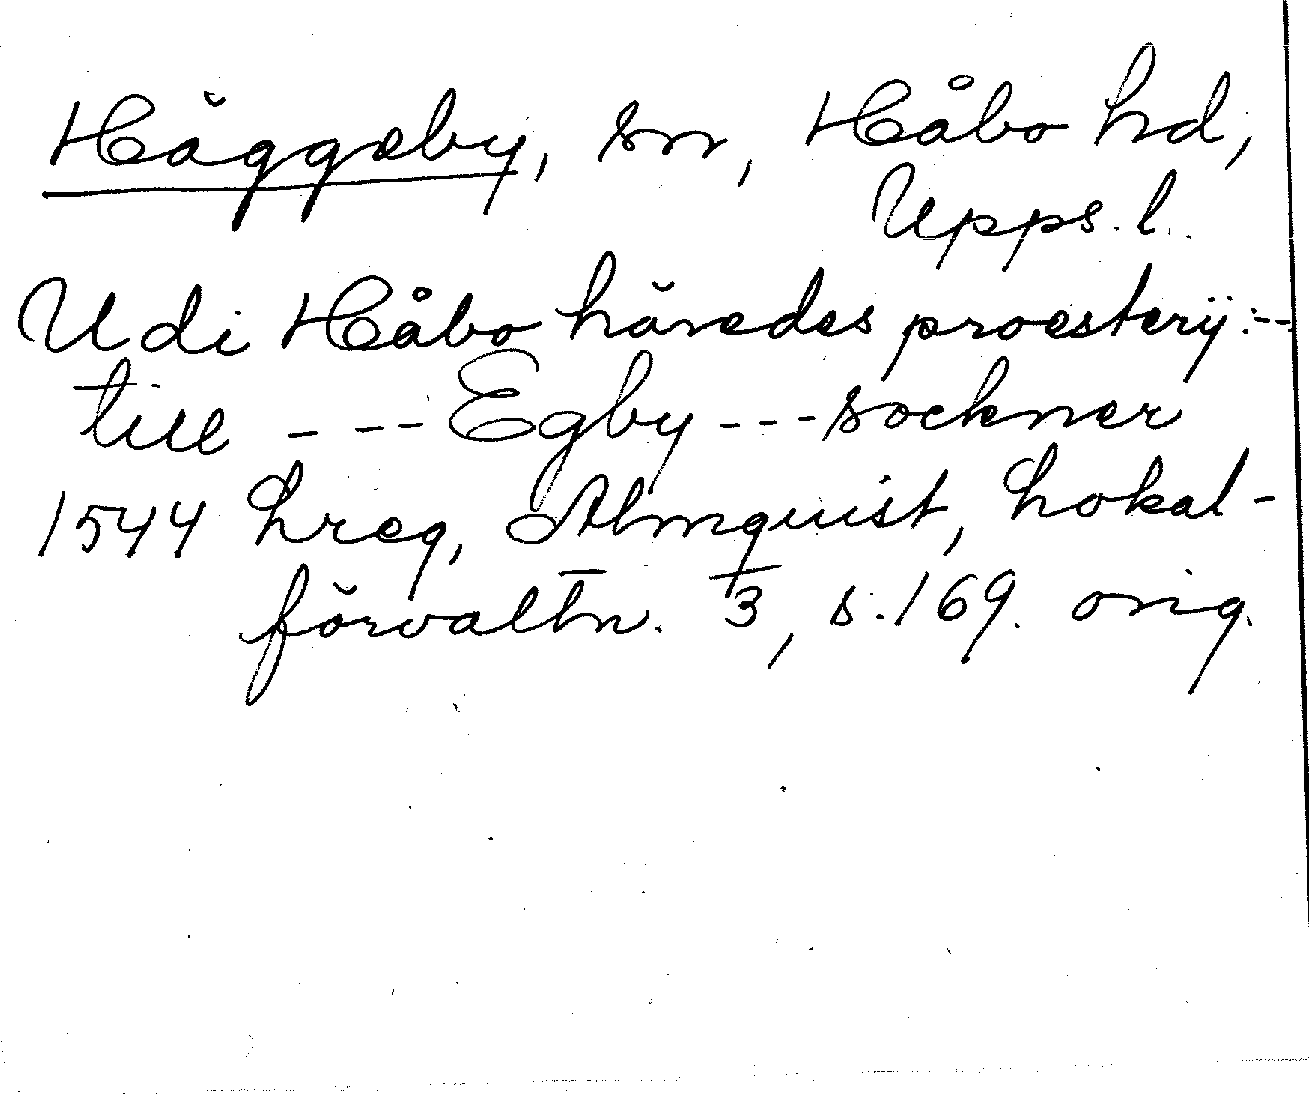 Häggeby, sn, Håbo hd,
Upps. l.
Udi Håbo häredes proesterij: --
till --- Egby --- sockner
1544 hreg, Almquist, Lokal-
förvaltn. 3, s. 169. orig.